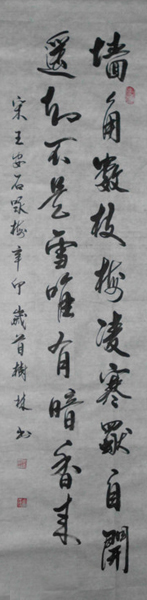 墙角数枝梅凌寒独自開
遥知不是雪唯有暗香来
宋王安石咏梅辛卯岁首樹林书